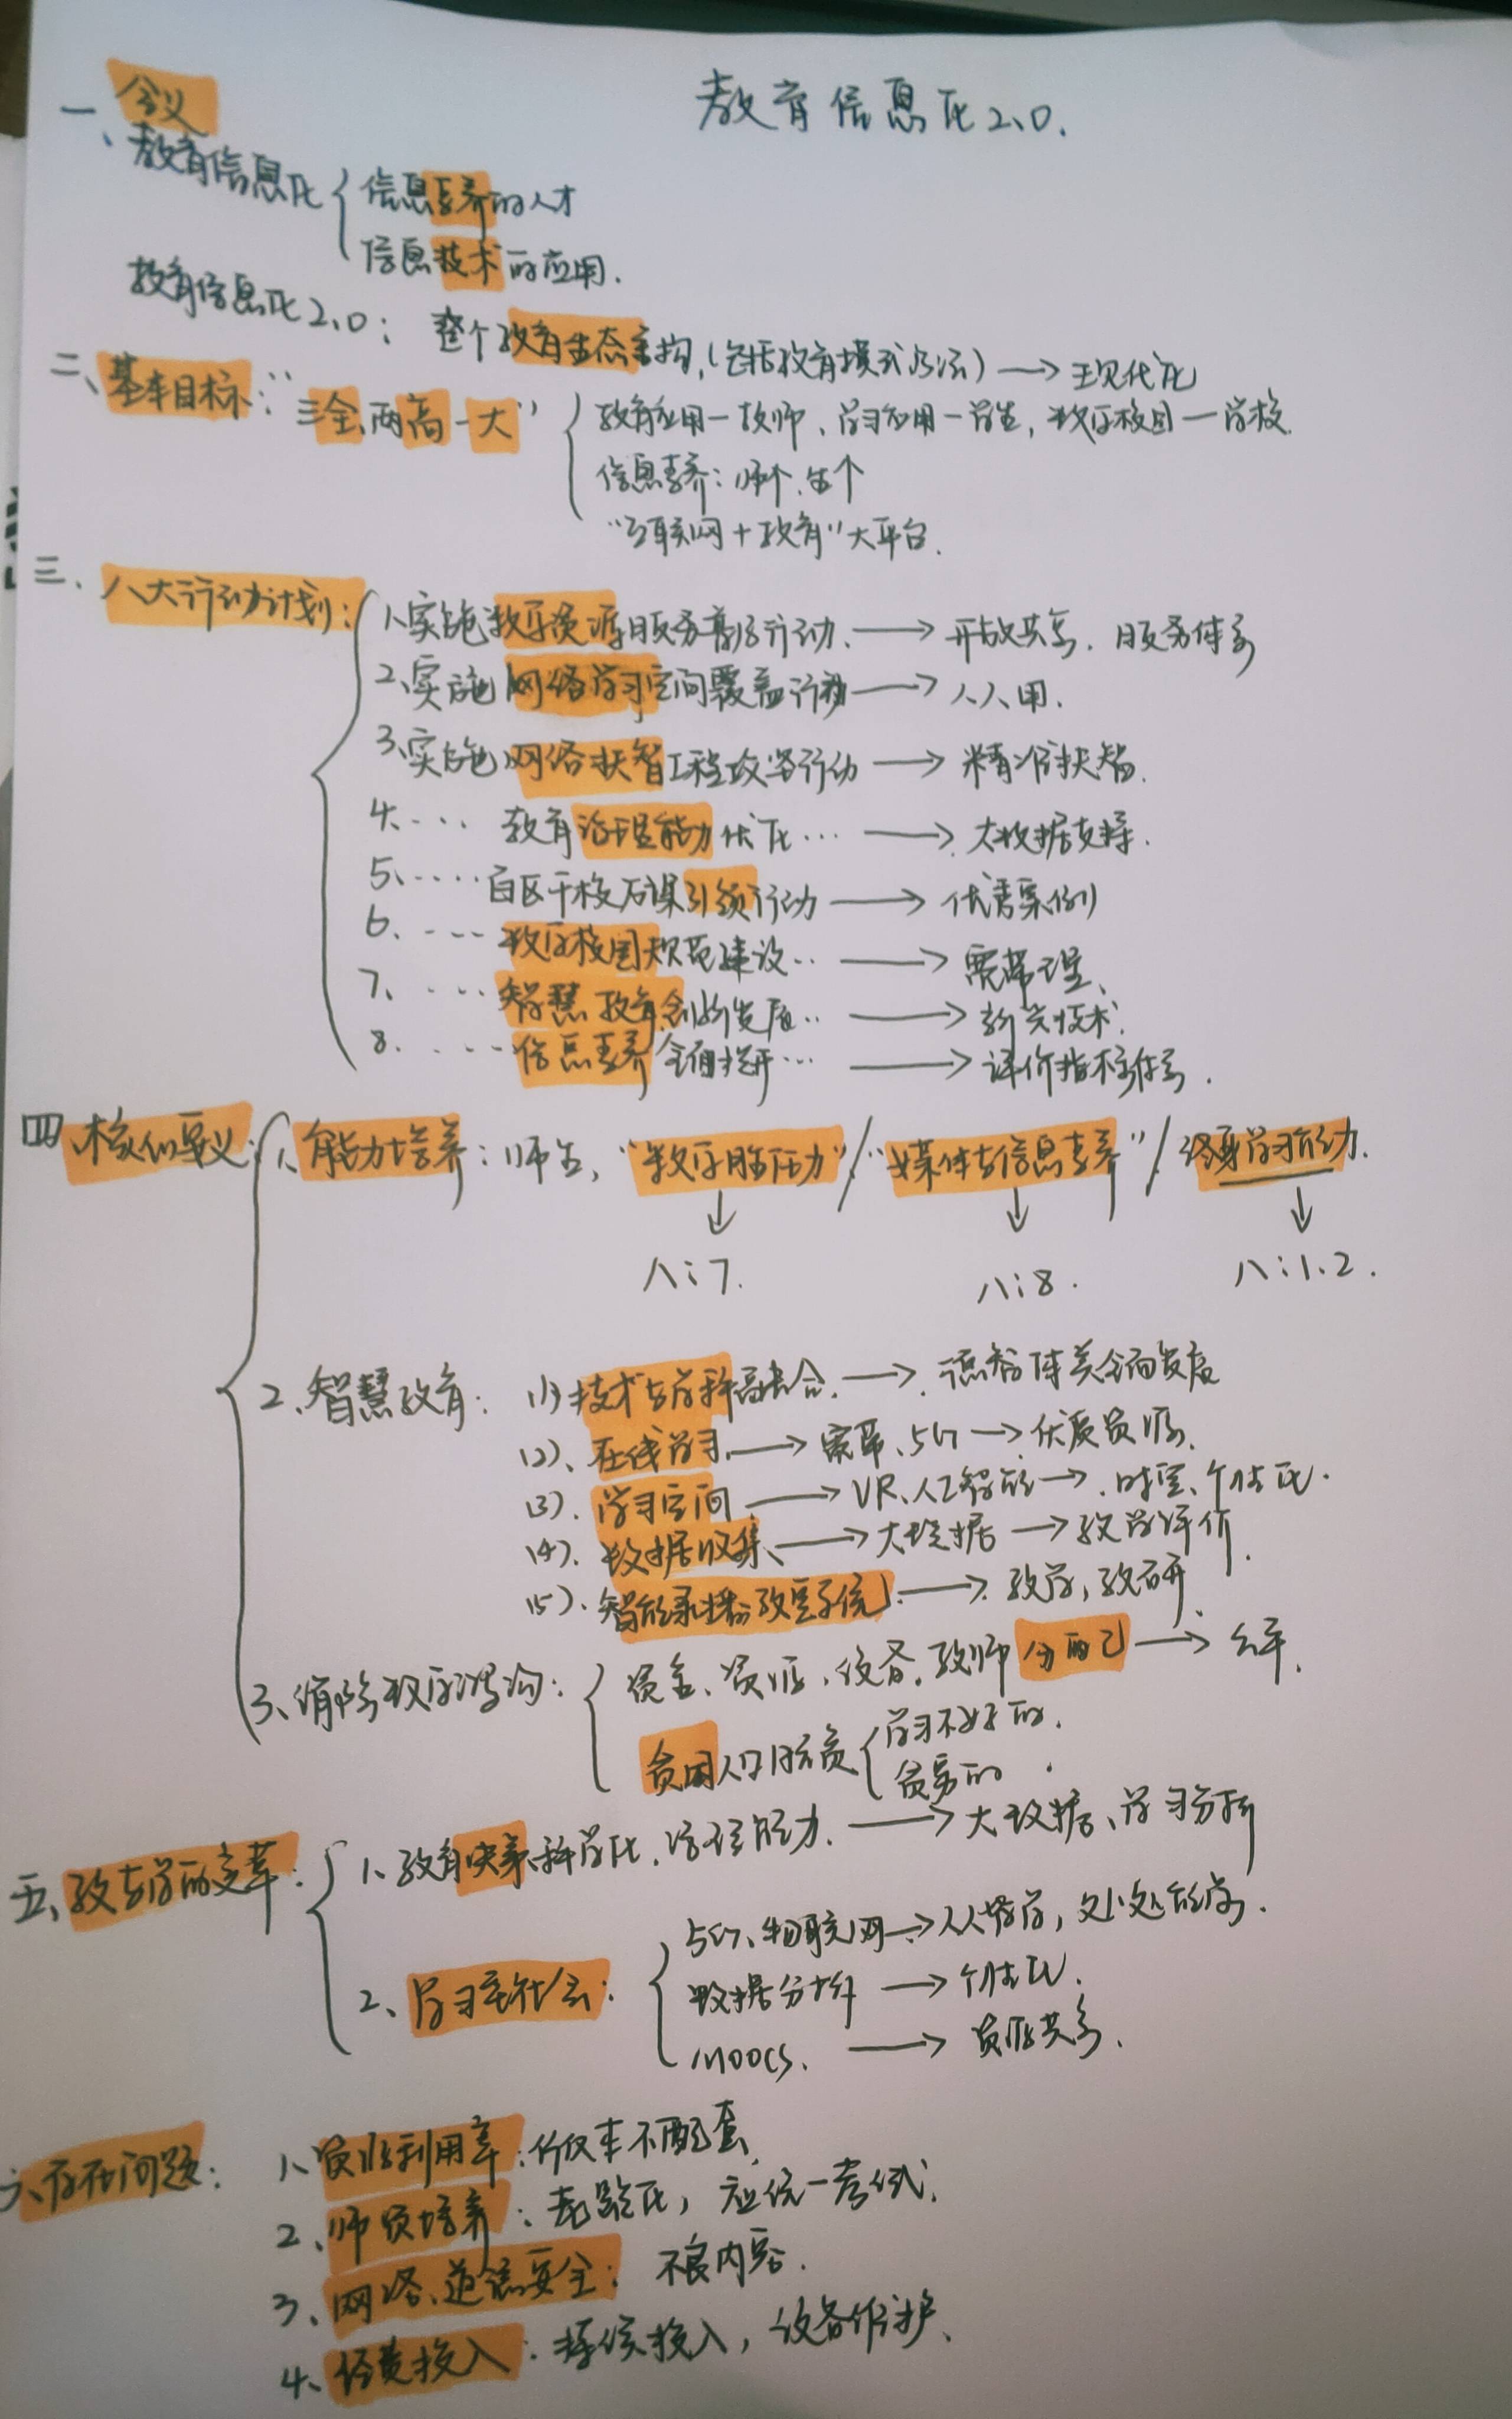 教育信息化2.0.
一、含义
教育信息化 信息素养的人才
信息技术的应用.
教育信息化2.0: 整个教育生态重构,(包括教育模式方法) → 现代化
二、基本目标: "三全、两高一大" 教育应用—教师、学习应用—学生, 数字校园—学校.
信息素养: 师个、生个
"互联网+教育"大平台.
三、八大行动计划: 1、实施数字资源服务普及行动. → 开放共享. 服务体系
2、实施网络学习空间覆盖行动 → 人人用.
3、实施网络扶智工程攻坚行动 → 精准扶智.
4、... 教育治理能力优化... → 大数据支撑.
5、.... 百区千校万课引领行动 → 优秀案例
6、.... 数字校园规范建设.. → 宽带
7、.... 智慧教育创新发展.. → 新兴技术.
8、.... 信息素养全面提升... → 评价指标体系.
四、核心要义: 1、能力培养: 师生, "数字胜任力"/"媒体与信息素养"/终身学习能力.
八:7. 八:8. 八:1、2.
2、智慧教育: (1)技术与学科高融合. → 德智体美全面发展
(2)、在线学习. → 宽带、5G → 优质资源.
(3). 学习空间. → VR、人工智能 → 时空、个性化.
(4). 数据收集、 → 大数据 → 教学评价.
(5). 智能录播教室系统 → 教学, 教研
3、消除数字鸿沟: 资金、资源、设备、教师分配 → 公平.
贫困人口 学习不好的.
贫穷的.
五、教与学的变革: 1、教育决策科学化. 治理能力. → 大数据、学习分析
2、学习型社会: 5G、物联网 → 人人皆学, 处处能学.
数据分析 → 个性化.
MOOCS. → 资源共享.
六、存在问题: 1、资源利用率: 价仅丰不配套
2、师资培养: 老龄化, 应统一考试.
3、网络、通信安全: 不良内容.
4、经费投入: 持续投入, 设备维护、